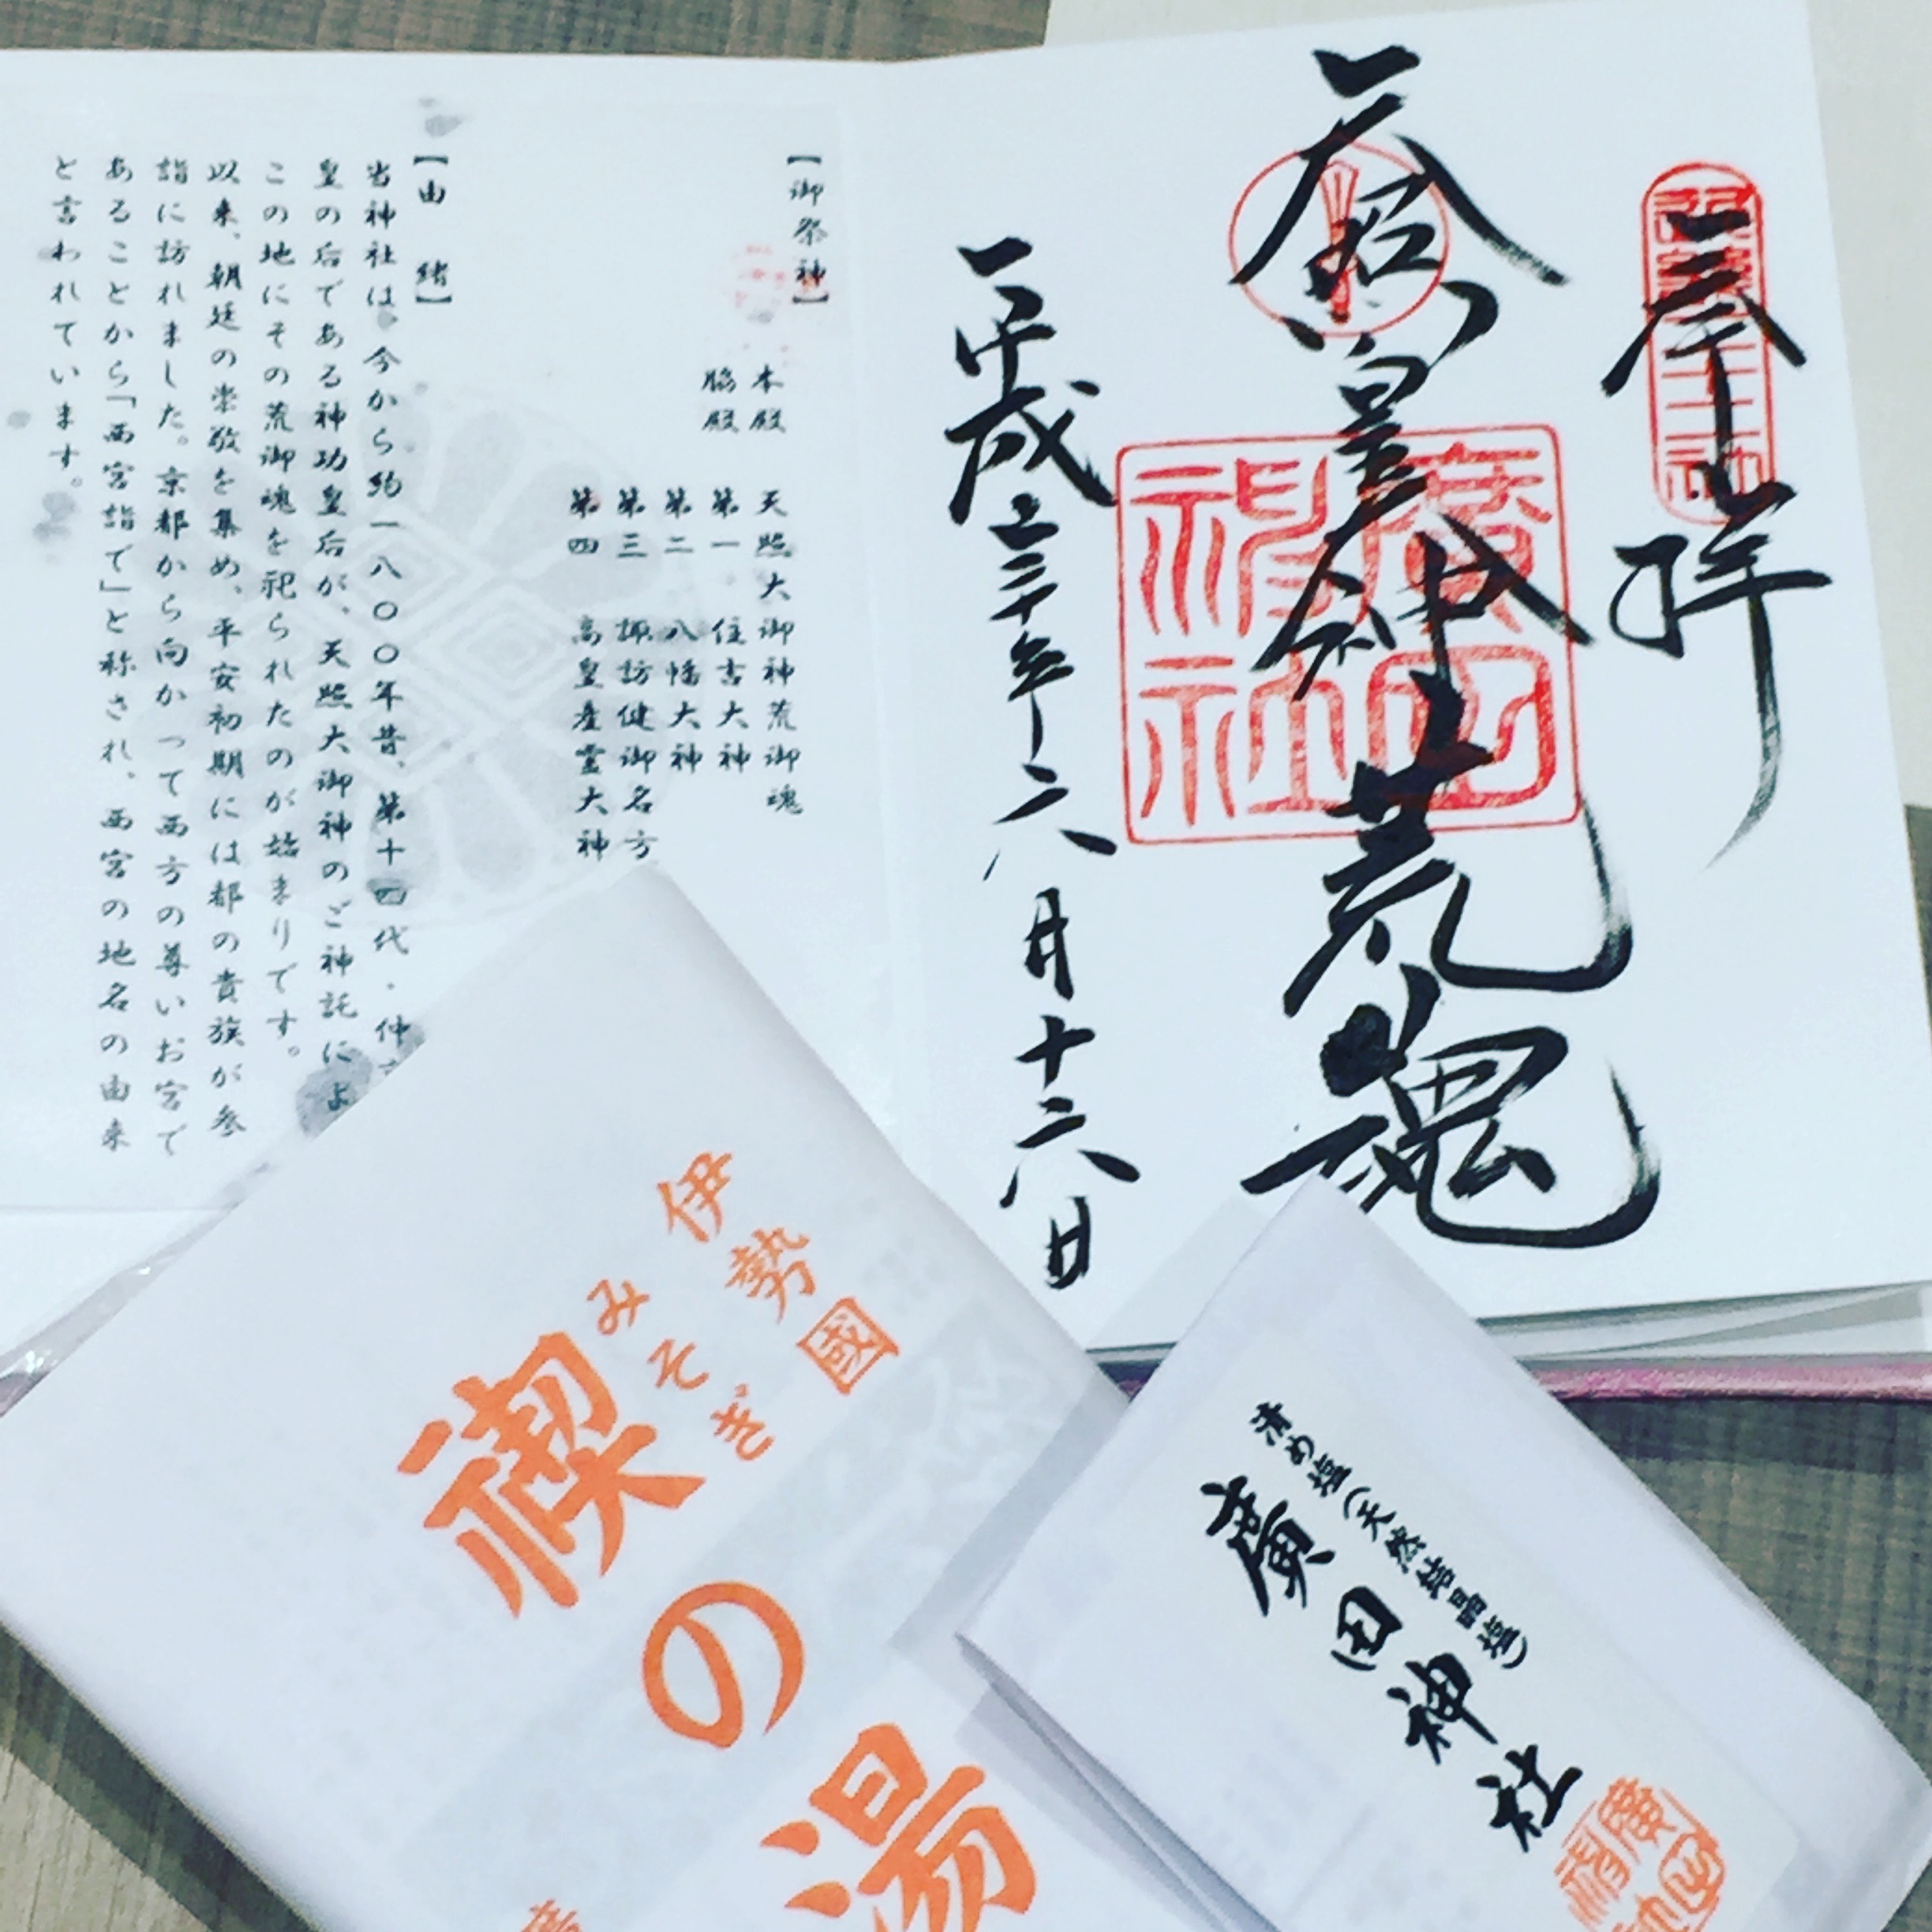 奉拝
天照皇大神荒魂
廣田神社
平成三十年六月十六日
【御祭神】
本殿　天照大御神荒御魂
脇殿　第一　住吉大神
第二　八幡大神
第三　諏訪健御名方
第四　高皇産霊大神
【由　緒】
当神社は、今から約一八〇〇年昔、第十四代・仲
皇の后である神功皇后が、天照大御神のご神託によ
この地にその荒御魂を祀られたのが始まりです。
以来、朝廷の崇敬を集め、平安初期には都の貴族が参
詣に訪れました。京都から向かって西方の尊いお宮で
あることから「西宮詣で」と称され、西宮の地名の由来
と言われています。
伊勢國
みそぎ
禊の湯
清め塩(天然結晶塩)
廣田神社
廣田神社